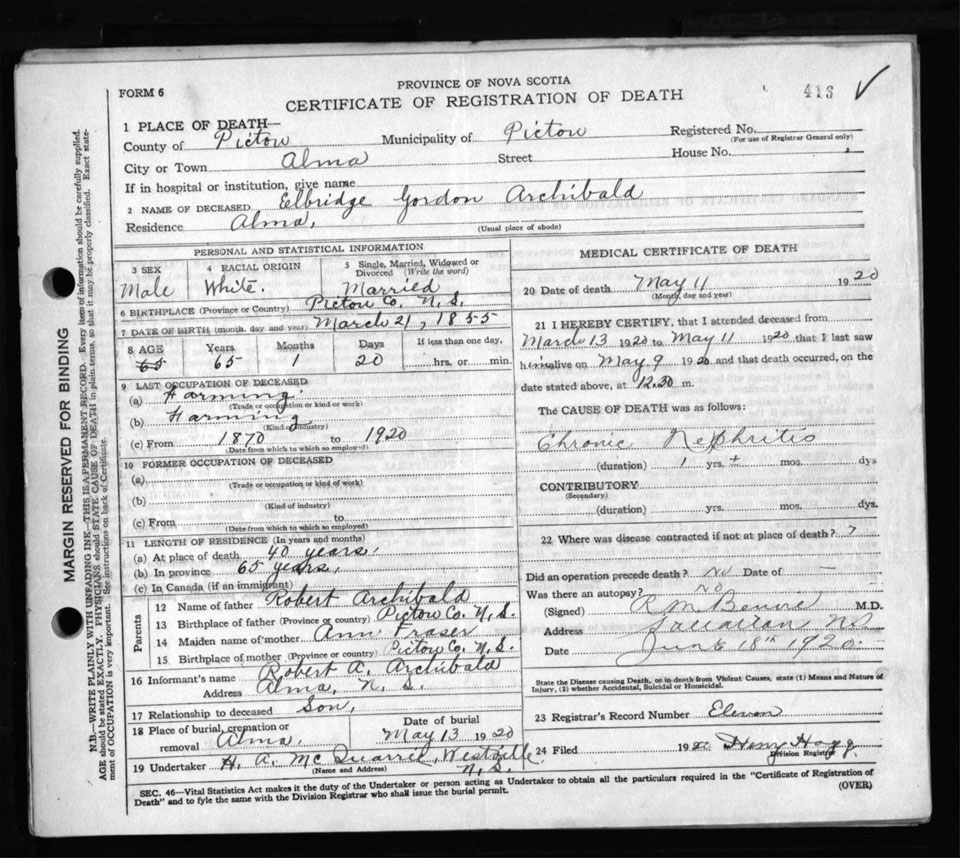 PROVINCE OF NOVA SCOTIA
FORM 6
CERTIFICATE OF REGISTRATION OF DEATH
413
1 PLACE OF DEATH—
County of Pictou Municipality of Pictou Registered No.
(For use of Registrar General only)
City or Town Alma Street House No.
If in hospital or institution, give name
2 NAME OF DECEASED Elbridge Gordon Archibald
Residence Alma,
(Usual place of abode)
PERSONAL AND STATISTICAL INFORMATION
3 SEX 4 RACIAL ORIGIN 5 Single, Married, Widowed or Divorced (Write the word)
Male White. Married
6 BIRTHPLACE (Province or Country) Pictou Co. N. S.
7 DATE OF BIRTH (month, day and year) March 21, 1855
8 AGE Years Months Days If less than one day,
65 65 1 20 hrs. or min.
9 LAST OCCUPATION OF DECEASED
(a) Farming.
(Trade or occupation or kind or work)
(b) Farming
(Kind of industry)
(c) From 1870 to 1920
(Date from which to which so employed)
10 FORMER OCCUPATION OF DECEASED
(a)
(Trade or occupation or kind of work)
(b)
(Kind of industry)
(c) From to
(Date from which to which so employed)
11 LENGTH OF RESIDENCE (In years and months)
(a) At place of death 40 years,
(b) In province 65 years,
(c) In Canada (if an immigrant)
Parents
12 Name of father Robert Archibald
13 Birthplace of father (Province or country) Pictou Co. N. S.
14 Maiden name of mother Ann Fraser
15 Birthplace of mother (Province or country) Pictou Co. N. S.
16 Informant's name Robert A. Archibald
Address Alma, N. S.
17 Relationship to deceased Son,
18 Place of burial, cremation or removal Alma, Date of burial May 13 1920
19 Undertaker H. A. McQuarrie, Westville N. S.
(Name and Address)
MEDICAL CERTIFICATE OF DEATH
20 Date of death May 11 1920
(Month, day and year)
21 I HEREBY CERTIFY, that I attended deceased from
March 13 1920 to May 11 1920 that I last saw
him alive on May 9 1920 and that death occurred, on the
date stated above, at 12.30 m.
The CAUSE OF DEATH was as follows:
Chronic Nephritis
(duration) 1 yrs. + mos. dys
CONTRIBUTORY
(Secondary)
(duration) yrs. mos. dys.
22 Where was disease contracted if not at place of death? ?
Did an operation precede death? No Date of —
Was there an autopsy? No
(Signed) M.D.
Address N S
Date June 18th 1920.
State the Disease causing Death, or in death from Violent Causes, state (1) Means and Nature of
Injury, (2) whether Accidental, Suicidal or Homicidal.
23 Registrar's Record Number Eleven
24 Filed 1920 Henry Hogg
Division Registrar
SEC. 46—Vital Statistics Act makes it the duty of the Undertaker or person acting as Undertaker to obtain all the particulars required in the "Certificate of Registration of
Death" and to fyle the same with the Division Registrar who shall issue the burial permit.
(OVER)
MARGIN RESERVED FOR BINDING
N.B.—WRITE PLAINLY WITH UNFADING INK—THIS IS A PERMANENT RECORD. Every item of information should be carefully supplied.
AGE should be stated EXACTLY. PHYSICIANS should STATE CAUSE OF DEATH in plain terms, so that it may be properly classified. Exact statement of OCCUPATION is very important. See instructions on back of Certificate.